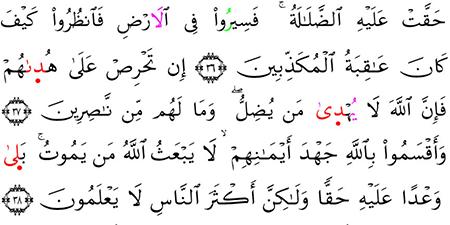 حَقَّتْ عَلَيْهِ ٱلضَّلَـٰلَةُ ۚ فَسِيرُوا۟ فِى ٱلَارْضِ فَٱنظُرُوا۟ كَيْفَ
كَانَ عَـٰقِبَةُ ٱلْمُكَذِّبِينَ ۝٣٦ إِن تَحْرِصْ عَلَىٰ هُدَىٰهُمْ
فَإِنَّ ٱللَّهَ لَا يُهْدَىٰ مَن يُضِلُّ ۖ وَمَا لَهُم مِّن نَّـٰصِرِينَ ۝٣٧
وَأَقْسَمُوا۟ بِٱللَّهِ جَهْدَ أَيْمَـٰنِهِمْ ۙ لَا يَبْعَثُ ٱللَّهُ مَن يَمُوتُ ۚ بَلَىٰ
وَعْدًا عَلَيْهِ حَقًّا وَلَـٰكِنَّ أَكْثَرَ ٱلنَّاسِ لَا يَعْلَمُونَ ۝٣٨